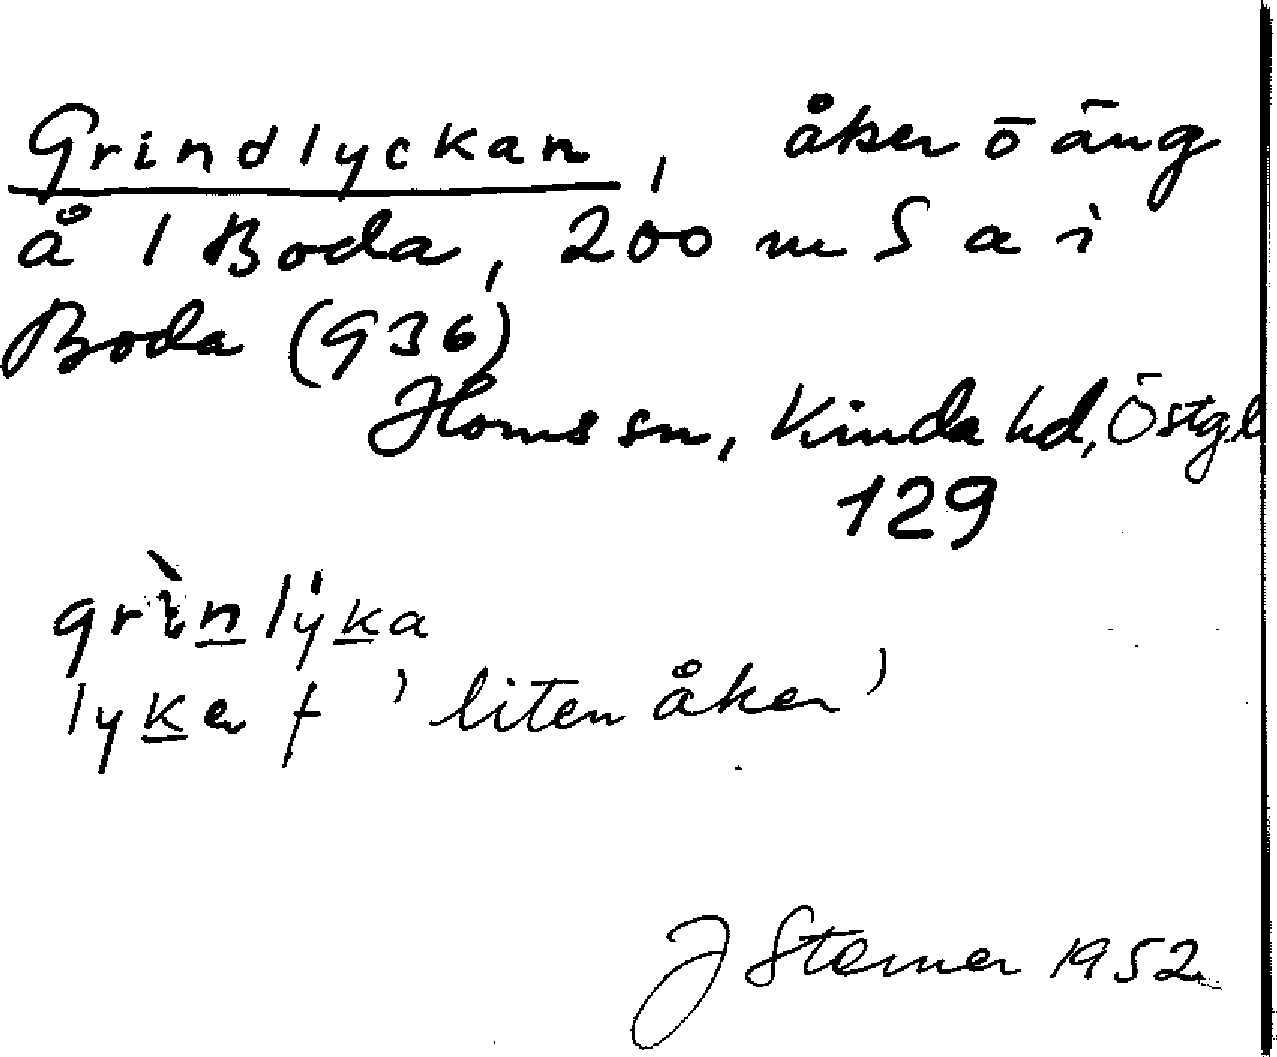 Grindlyckan, åker ō äng
å 1 Boda, 200 m S a i
Boda (936)
Horns sn, Kinda hd, Östgl
129
grìnlýka
lyka f 'liten åker'
J Sterner 1952